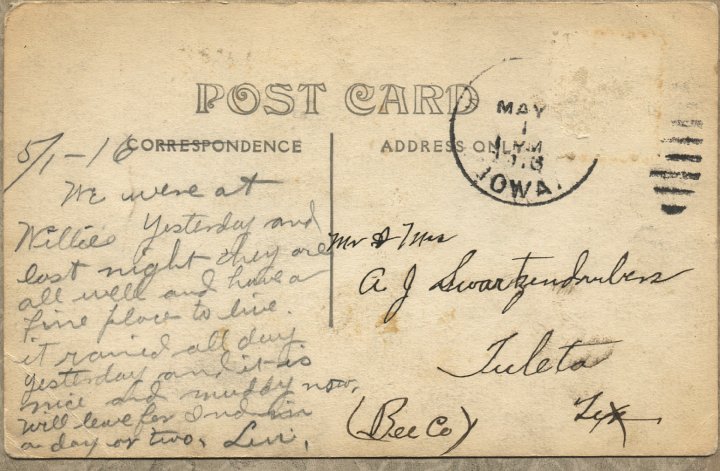 POST CARD
CORRESPONDENCE
ADDRESS ONLY
MAY
1
M
1916
IOWA.
5/1-16
We were at
Willies Yesterday and
last night they are
all well and have a
fine place to live.
it rained all day
yesterday and it is
nice and muddy now.
will leave for Ind in
a day or two, Levi,
Mr & Mrs
A J Swartzendrubers
Tuleta
(Bee Co) Tex